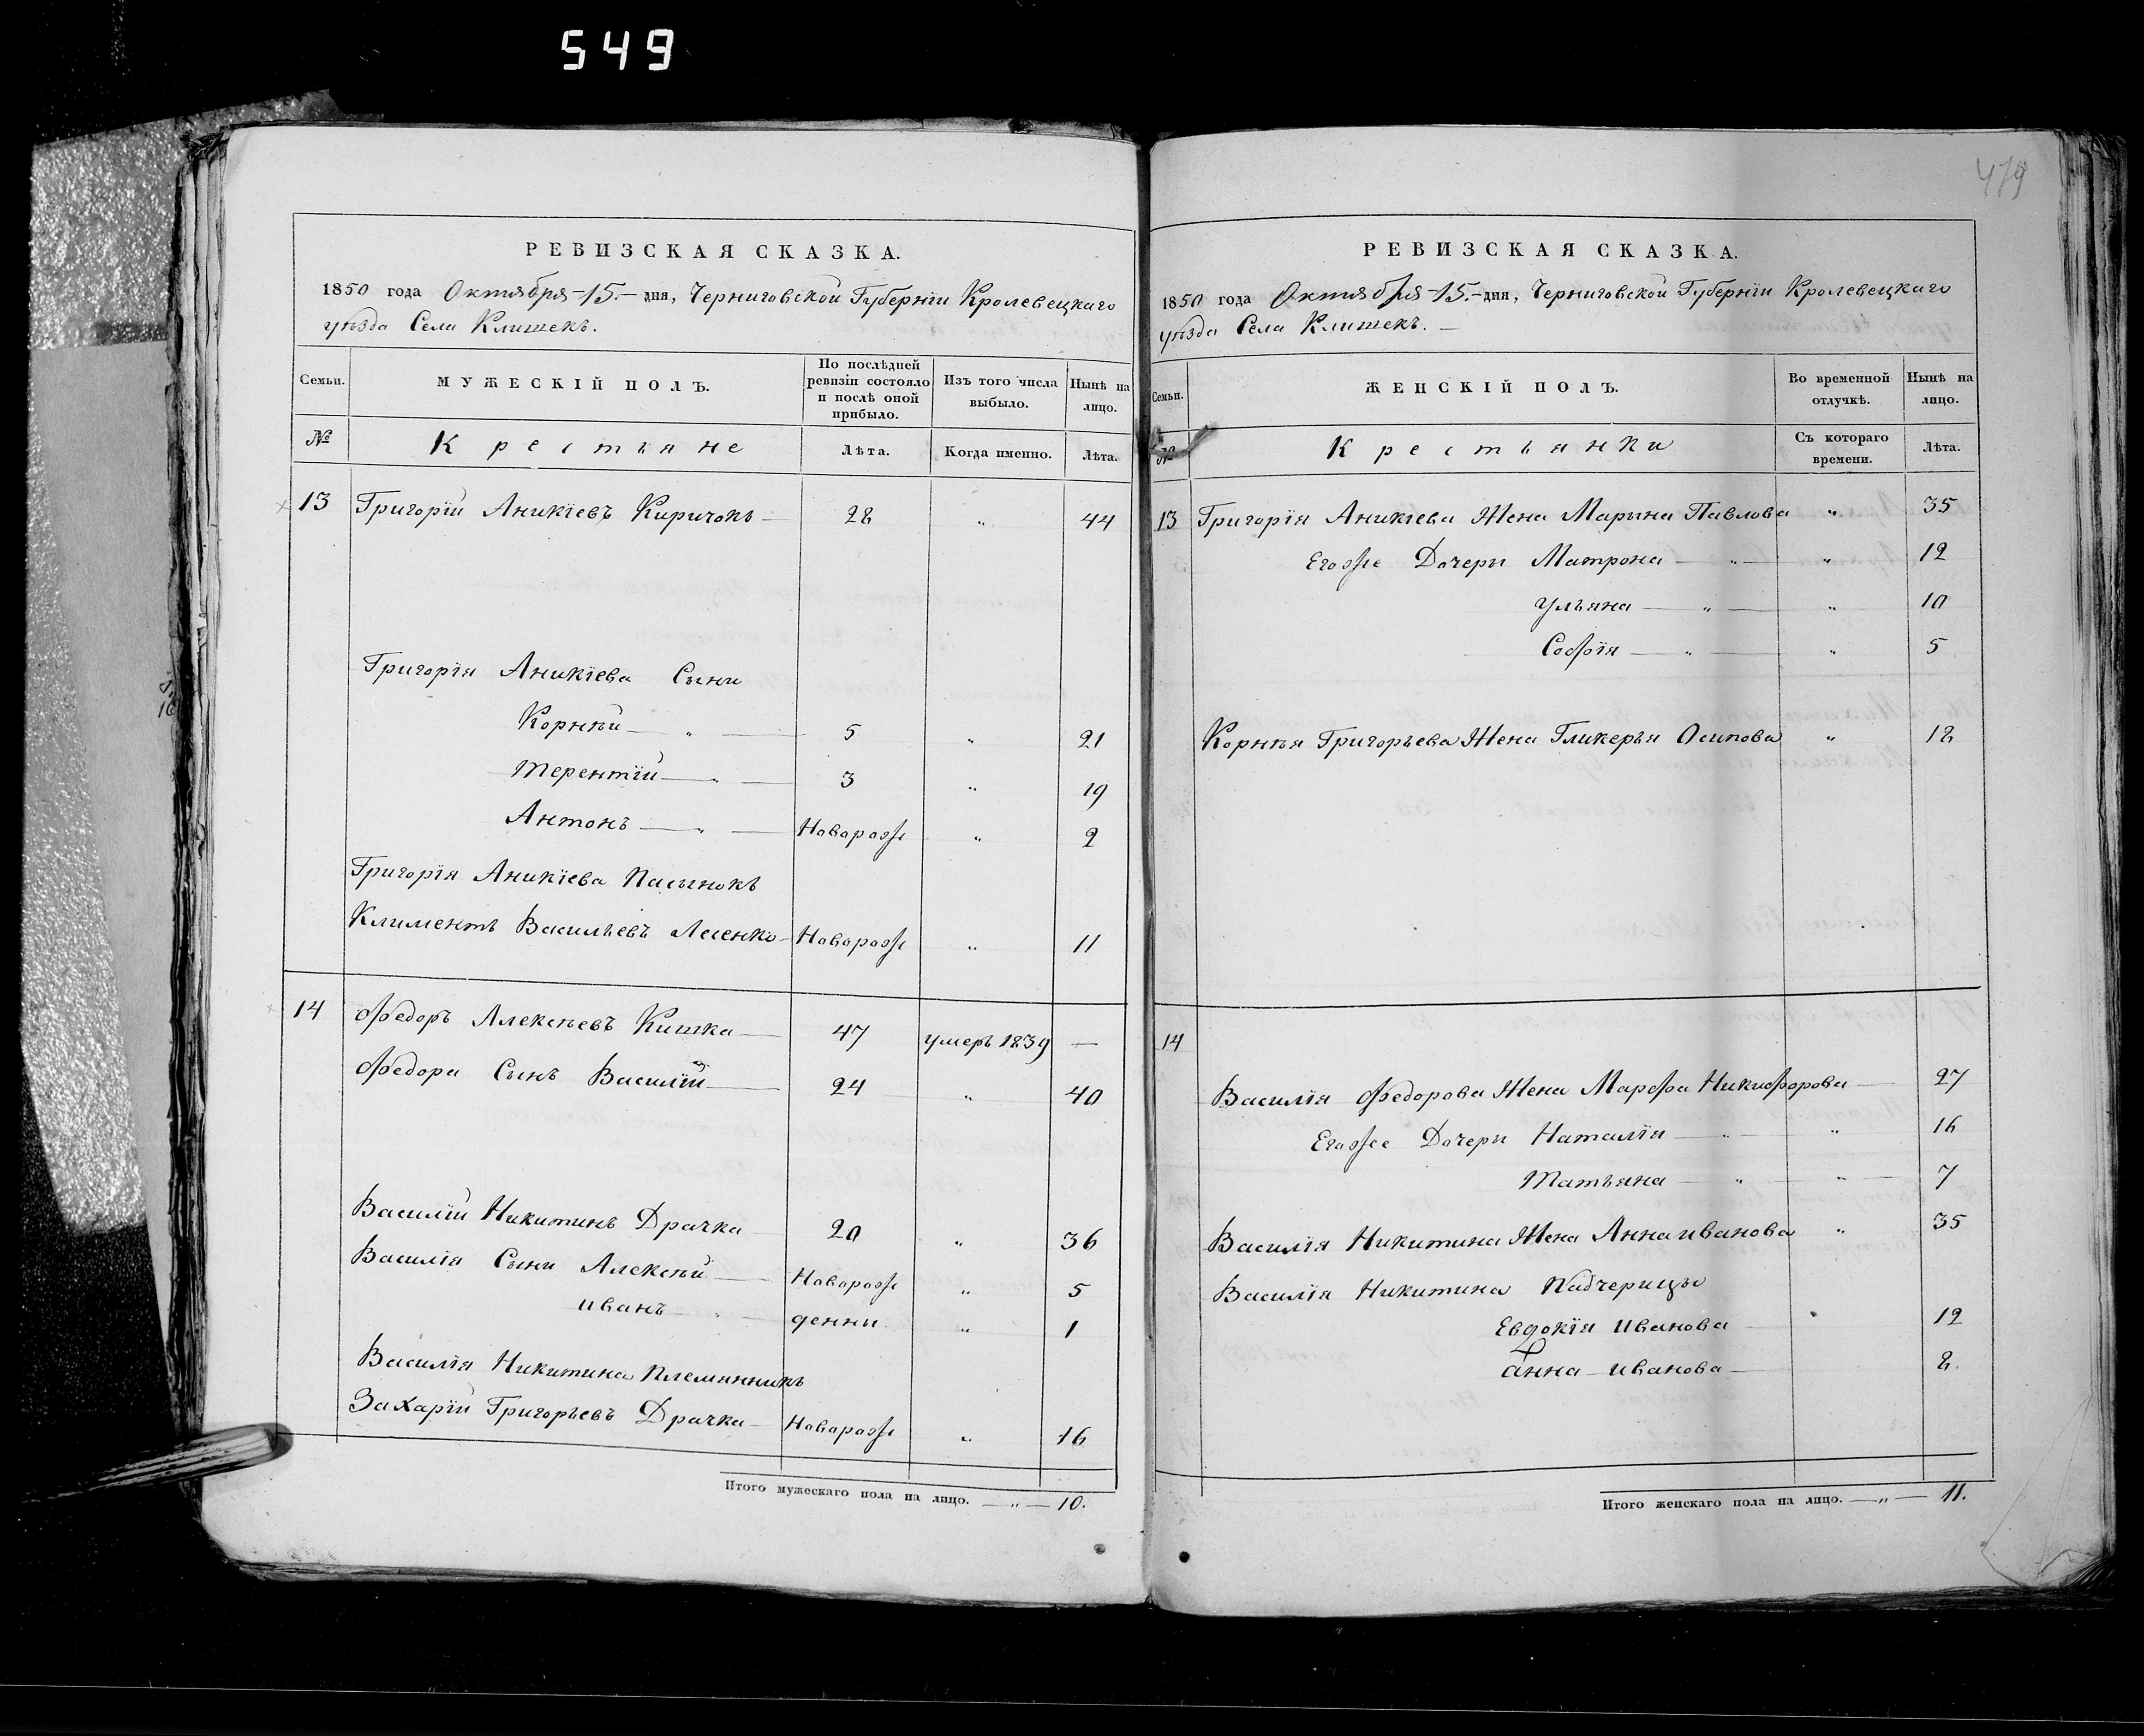 549
479
РЕВИЗСКАЯ СКАЗКА.
1850 года Октября 15.– дня, Черниговской Губерніи Кролевецкаго
уѣзда Села Клишекъ.
Семьи.
МУЖЕСКІЙ ПОЛЪ.
По послѣдней ревизіи состояло и послѣ оной прибыло.
Изъ того числа выбыло.
Нынѣ на лицо.
№
Крестьяне
Лѣта.
Когда именно.
Лѣта.
13 Григорій Аникіевъ Киричокъ — 28 „ 44
Григорія Аникіева Сыни
Корнѣй — „ — 5 „ 21
Терентій — „ — 3 „ 19
Антонъ — „ — Наворож „ 2
Григорія Аникіева Пасынокъ
Климентъ Васильевъ Лесенко — Наворож „ 11
14 Федоръ Алексѣевъ Кишка — 47 умеръ 1839 —
Федора Сынъ Василій — 24 „ 40
Василій Никитинъ Драчка 20 „ 36
Василія Сыни Алексѣй — Наворож „ 5
иванъ — „ — денни „ 1
Василія Никитина племянникъ
Захарій Григорьевъ Драчка — Наворож „ 16
Итого мужескаго пола на лицо. — „ — 10.
РЕВИЗСКАЯ СКАЗКА.
1850 года Октября 15.– дня, Черниговской Губерніи Кролевецкаго
уѣзда Села Клишекъ. —
Семьи.
ЖЕНСКІЙ ПОЛЪ.
Во временной отлучкѣ.
Нынѣ на лицо.
№
Крестьянки
Съ котораго времени.
Лѣта.
13 Григорія Аникіева Жена Марына Павлова „ 35
Егоже Дочери Матрона — „ — „ 12
Ульяна — „ — „ 10
Софія — „ — „ 5
Корнѣя Григорьева Жена Гликерья Осипова „ 18
14
Василія Федорова Жена Марфа Никифорова — 27
Егоже Дочери Наталія — „ — „ 16
Татьяна — „ — „ 7
Василія Никитина Жена Анна иванова „ 35
Василія Никитина Падчерицы
Евдокія Иванова 12
Анна — иванова — 8.
Итого женскаго пола на лицо. — „ — 11.